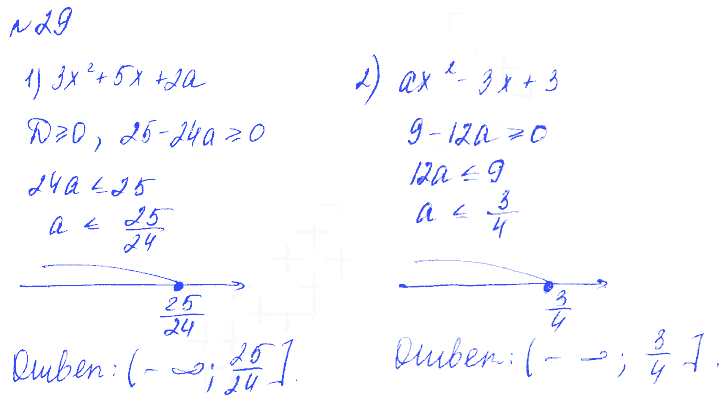 №29
1) 3x² + 5x + 2a
D ≥ 0, 25 - 24a ≥ 0
24a ≤ 25
a ≤ 25/24
25/24
Ответ: (-∞; 25/24].
2) ax² - 3x + 3
9 - 12a ≥ 0
12a ≤ 9
a ≤ 3/4
3/4
Ответ: (-∞; 3/4].